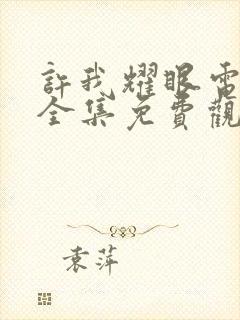 許我耀眼電
全集免費觀
袁萍